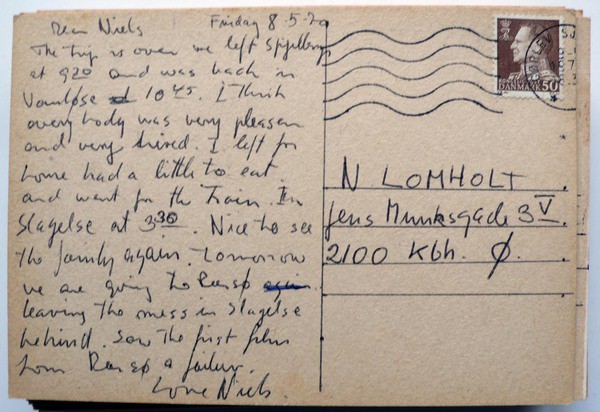 Dear Niels
Friday 8-5-70
The trip is over we left
at 920 and was back in
Vanløse 1045. I think
everybody was very pleased
and very tired. I left for
home had a little to eat
and went for the Train. In
Slagelse at 330. Nice to see
the family again. Tomorrow
we are going to Rersø
leaving the mess in Slagelse
behind. Saw the first film
from Rersø a failure.
Love Niels.
DANMARK 50
N LOMHOLT
Jens Munksgade 3V
2100 Kbh. Ø.